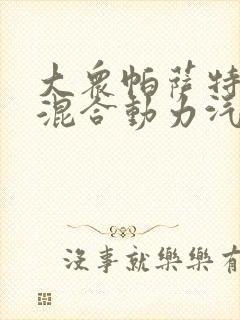 大衆帕薩特
混合動力汽
沒事就樂樂有